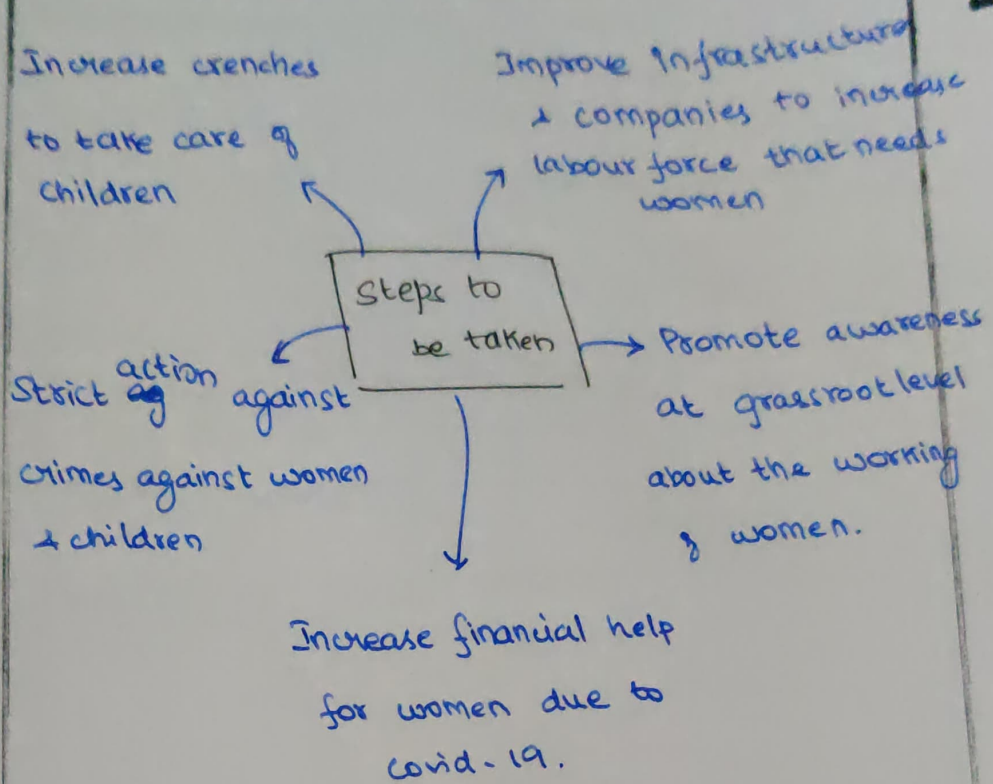 Increase crenches
to take care of
children
Improve Infrastructure
& companies to increase
labour force that needs
women
Steps to
be taken
Strict action against
crimes against women
& children
Promote awareness
at grassroot level
about the working
of women.
Increase financial help
for women due to
covid-19.